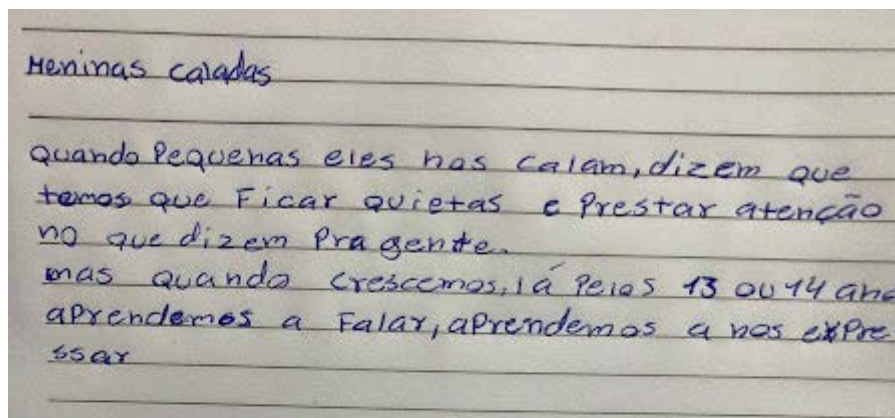 Meninas caladas
Quando Pequenas eles nos calam, dizem que
temos que Ficar quietas e Prestar atenção
no que dizem Pra gente.
mas quando crescemos, lá Pelos 13 ou 14 ano
aPrendemos a Falar, aPrendemos a nos expre
ssar